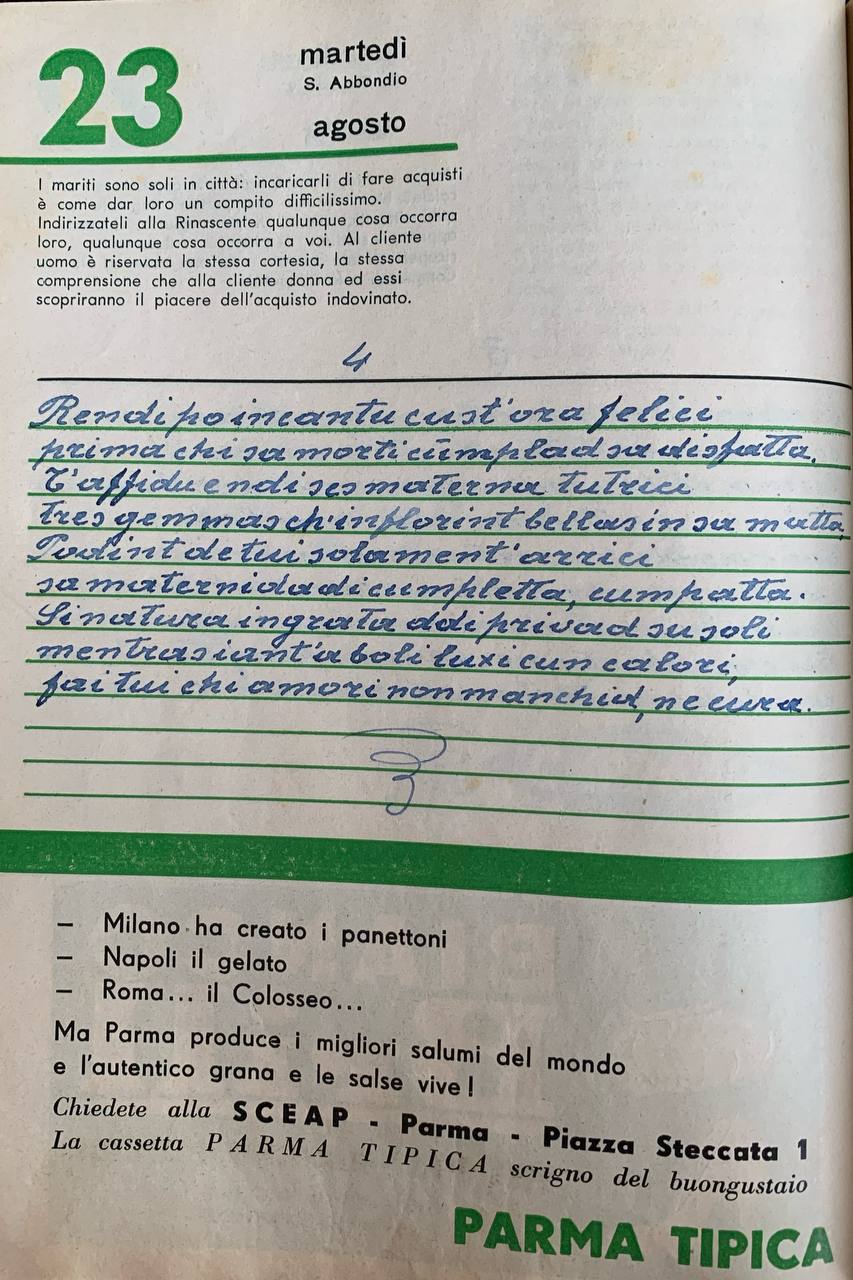 23
martedì
S. Abbondio
agosto
I mariti sono soli in città: incaricarli di fare acquisti
è come dar loro un compito difficilissimo.
Indirizzateli alla Rinascente qualunque cosa occorra
loro, qualunque cosa occorra a voi. Al cliente
uomo è riservata la stessa cortesia, la stessa
comprensione che alla cliente donna ed essi
scopriranno il piacere dell'acquisto indovinato.
4
Rendi po incantu cust'ora felici
prima chi sa morti cumplad sa disfatta.
T'affidu e ndi ses materna tutrici
tres gemmas ch'inflorint bellas in sa matta.
Podint de tui solament'arrici
sa maternidadi cumpletta, cumpatta.
Si natura ingrata ddi privad su soli
mentras iant'a boli luxi cun calori,
fai tui chi amori non manchid, ne cura.
— Milano ha creato i panettoni
— Napoli il gelato
— Roma... il Colosseo...
Ma Parma produce i migliori salumi del mondo
e l'autentico grana e le salse vive!
Chiedete alla SCEAP - Parma - Piazza Steccata 1
La cassetta PARMA TIPICA scrigno del buongustaio
PARMA TIPICA